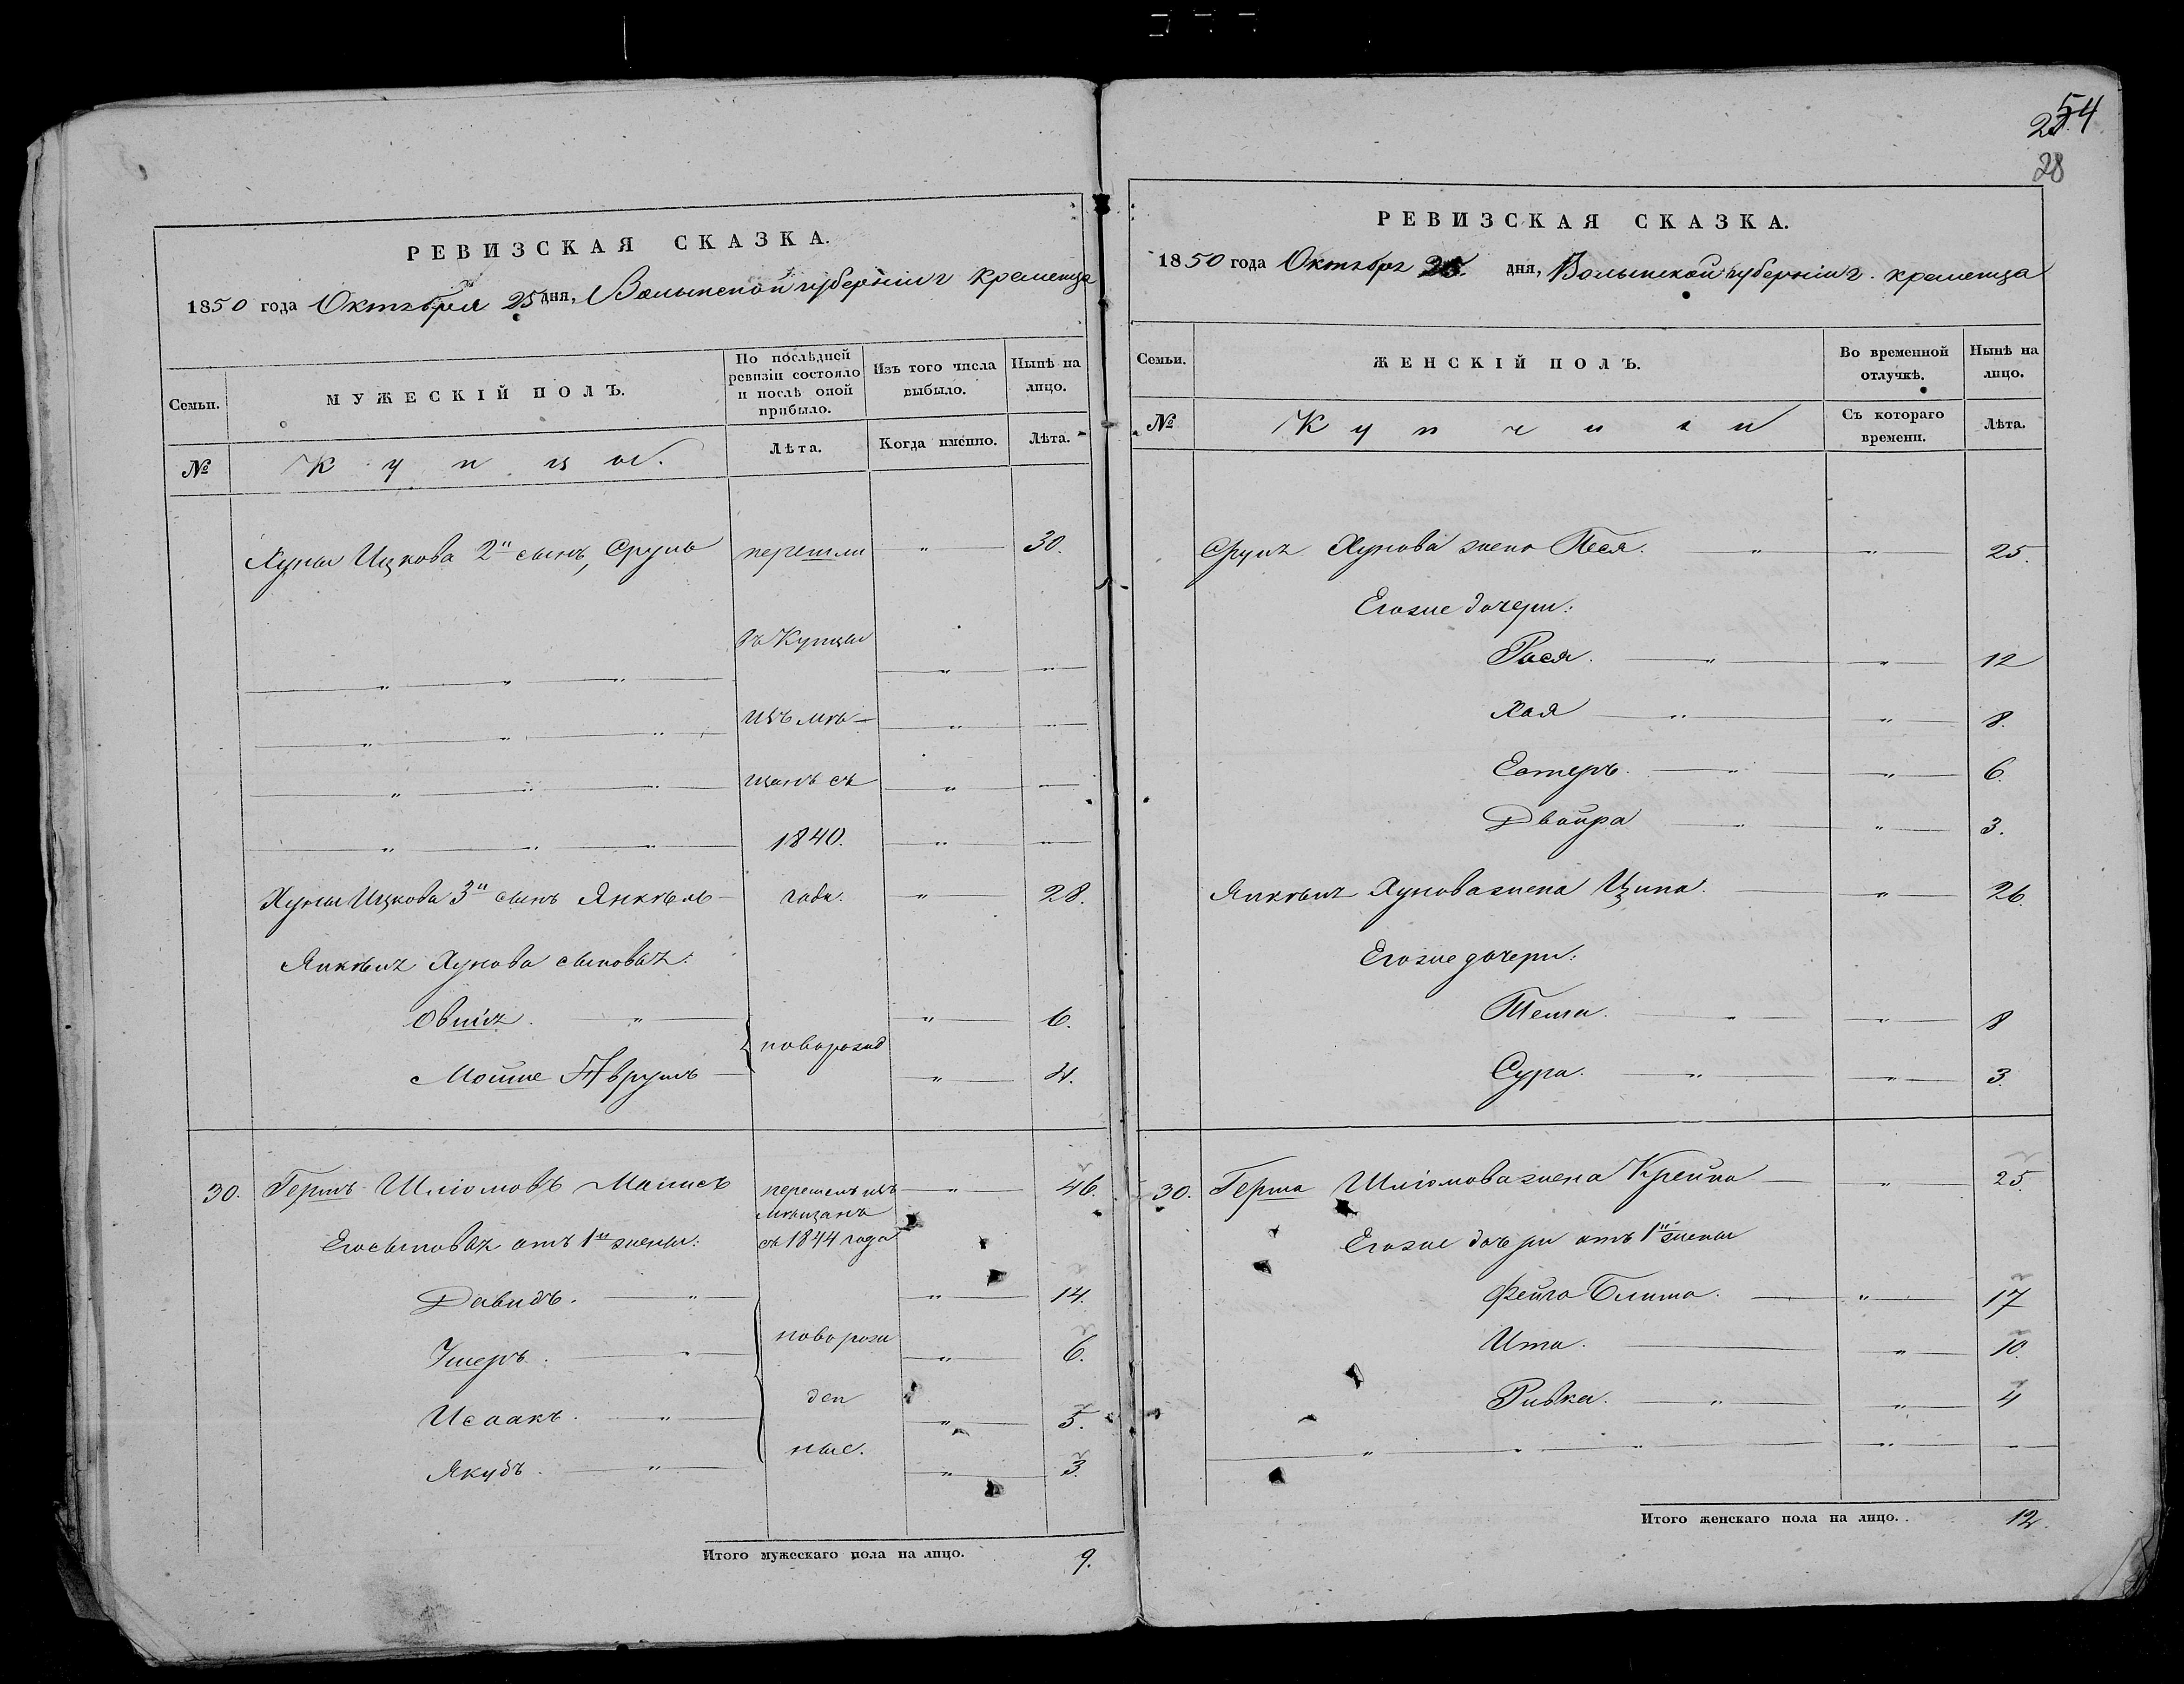 РЕВИЗСКАЯ СКАЗКА.
1850 года Октября 25 дня, Волынской губерніи г Кременца
Семьи.
МУЖЕСКІЙ ПОЛЪ.
По послѣдней ревизіи состояло и послѣ оной прибыло.
Изъ того числа выбыло.
Нынѣ на лицо.
№
Купцы.
Лѣта.
Когда именно.
Лѣта.
Хуны Ицкова 2й сынъ, Сруль перешли " 30.
въ Купцы "
изъ мѣ- "
щанъ съ "
1840. "
Хуны Ицкова 3й сынъ Янкѣль года. " 28.
Янкѣля Хунова сыновья:
" 6.
новорожд
Мойше Аврумъ " 4.
30. Гершъ Шліомовъ перешелъ изъ " 46.
мѣщанъ
Его сыновья отъ 1й жены: съ 1844 года
Давидъ. " " 14.
новорож
Ушеръ. " " 6.
ден
Исаакъ. " " 5.
ные.
Якубъ. " " 3.
Итого мужескаго пола на лицо. 9.
54
28
РЕВИЗСКАЯ СКАЗКА.
1850 года Октября 25 дня, Волынской губерніи г. Кременца
Семьи.
ЖЕНСКІЙ ПОЛЪ.
Во временной отлучкѣ.
Нынѣ на лицо.
№
Купчихи
Съ котораго времени.
Лѣта.
Сруля Хунова жена Песя. " " 25.
Его же дочери:
Рася. " " 12
Хая " " 8.
Естеръ. " " 6.
Двойра " " 3.
Янкѣля Хунова жена Ципа. " 26.
Его же дочери:
" " 8
Сура. " " 3.
30. Герша Шліомова жена Крейна " 25.
Его же дочери отъ 1й жены
Фейга Блима. " 17
Ита. " 10.
Ривка. " " 4
" " " "
Итого женскаго пола на лицо. 12.